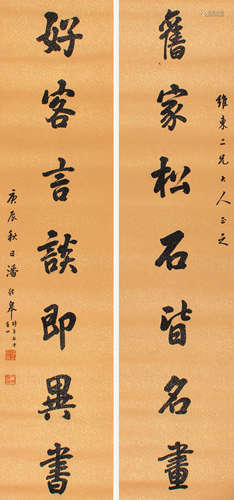 維東二兄大人正之
舊家松石皆名畫
好客言談即異書
庚辰秋日潘齡皋